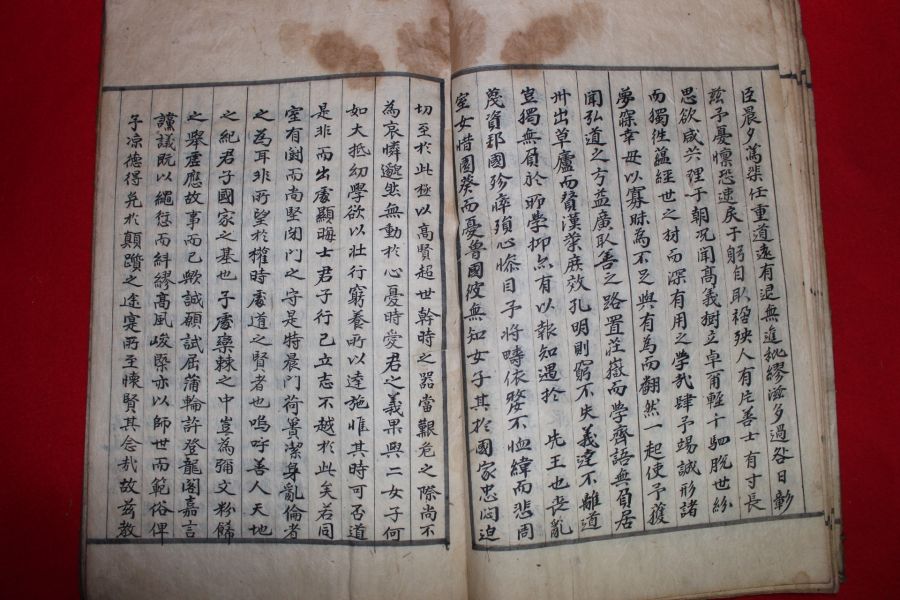 臣晨夕萬柒任重道遠有退無進秕繆滋多過咎日彰
玆予憂懍恐速戾于躬自取殛殃人有片善士有寸長
思欲咸共理于朝况聞高義樹立卓爾輕千駟脫世紛
而獨徃蘊經世之材而深有用之學哉肆予賜誠形諸
夢寐幸毋以寡昧為不足與有為而翻然一起使予獲
聞弘道之方益廣取善之路置莊嶽而學齊語無負居
卅出草廬而贊漢業庶效孔明則窮不失義達不離道
豈獨無負於所學抑亦有以報知遇於 先王也喪亂
蔑資邦國殄瘁殞心慘目予將疇依嫠不恤緯而悲周
室女惜園葵而憂魯國彼無知女子其於國家忠悶迫
切至於此極以高賢超世幹時之器當艱危之際尚不
為哀憐邈然無動於心憂時愛君之義果與二女子何
如大抵幼學欲以壯行窮養所以達施惟其時可否道
是非而出處顯晦士君子行己立志不越於此矣若同
室有鬪而尚堅閉門之守是特晨門荷蕢潔身亂倫者
之為耳非所望於權時處道之賢者也嗚呼善人天地
之紀君子國家之基也予處欒棘之中豈為彌文粉餙
之舉虛應故事而已歟誠願試屈蒲輪許登龍閣嘉言
讜議既以繩愆而糾繆高風峻槩亦以師世而範俗俾
予凉德得免於顛躓之途寔所至懷賢其念哉故玆教